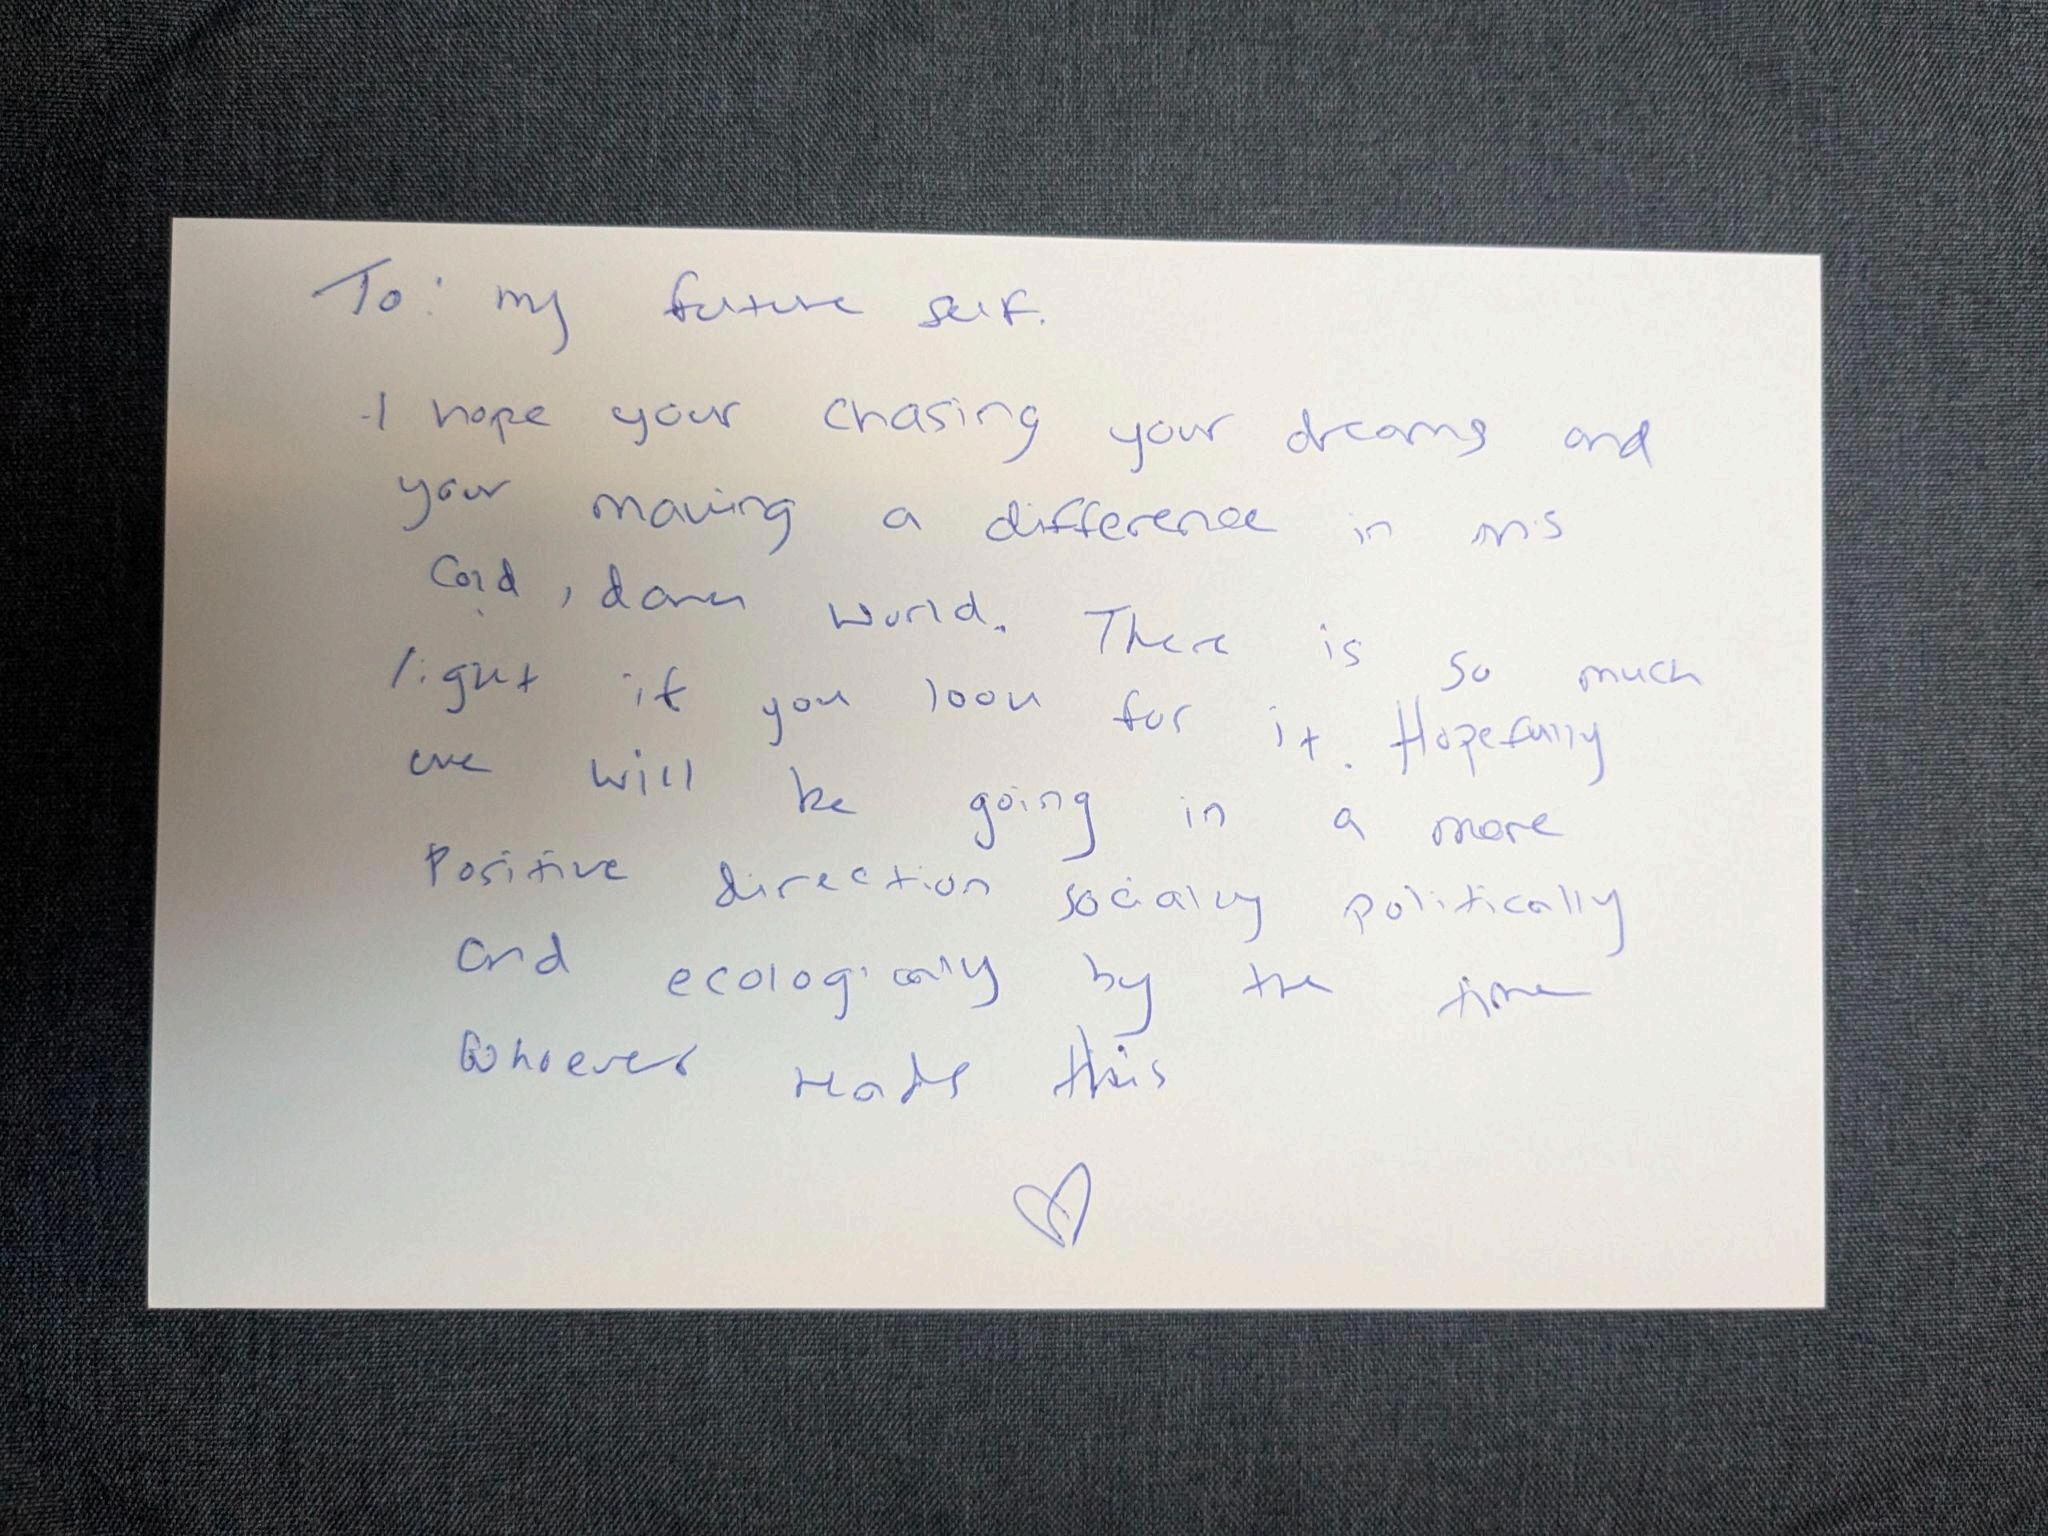 To: my future self.
I hope your chasing your dreams and
your making a difference in this
cold, dark world. There is so much
light if you look for it. Hopefully
we will be going in a more
Positive direction socially politically
and ecologically by the time
Whoever reads this
♡